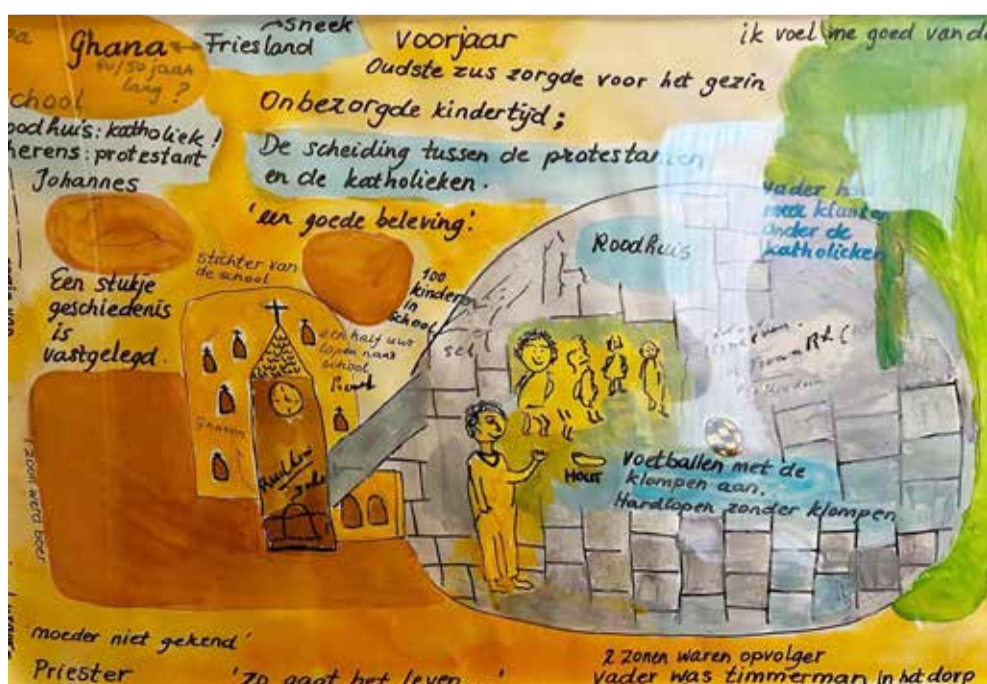 Ghana ↔ Friesland
sneek
40/50 jaar
lang?
Voorjaar
Oudste zus zorgde voor het gezin
ik voel me goed van
chool
oodhuis: katholiek!
herens: protestant
Johannes
Onbezorgde kindertijd;
De scheiding tussen de protestanten
en de katholieken.
'een goede beleving'.
vader had
meer klanten
onder de
katholieken
Een stukje
geschiedenis
is
vastgelegd.
stichter van
de school
100
kinderen
in
school
een half uur
lopen naar
school
Roodhuis
Hout
voetballen met de
klompen aan.
Hardlopen zonder klompen
1 zoon werd boer
'moeder niet gekend'
Priester
'Zo gaat het leven...'
2 zonen waren opvolger
vader was timmerman in het dorp